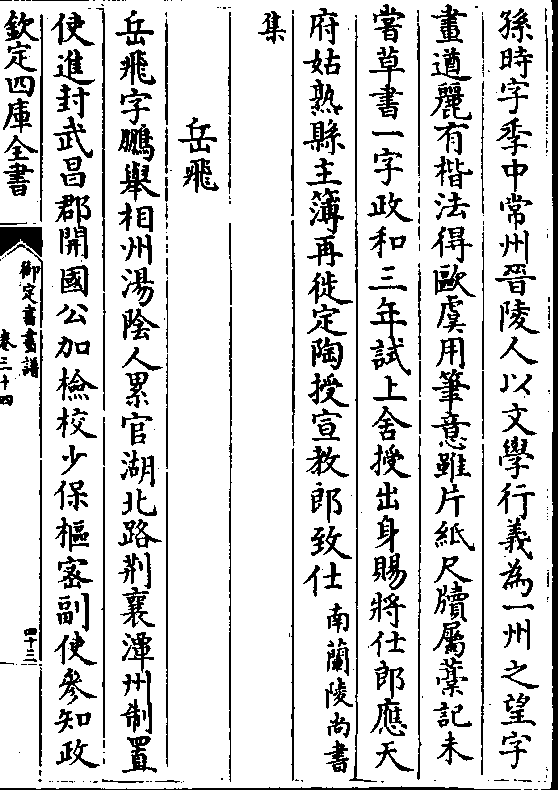 孫時字季中常州晉陵人以文學行義為一州之望字
畫遒麗有楷法得歐虞用筆意雖片紙尺牘屬藁記未
嘗草書一字政和三年試上舍授出身賜將仕郎應天
府姑熟縣主簿再徙定陶授宣教郎致仕 南蘭陵尚書
集
岳飛
岳飛字鵬舉相州湯陰人累官湖北路荆襄潭州制置
使進封武昌郡開國公加檢校少保樞密副使參知政
欽定四庫全書
御定書畫譜
卷三十四
四十三